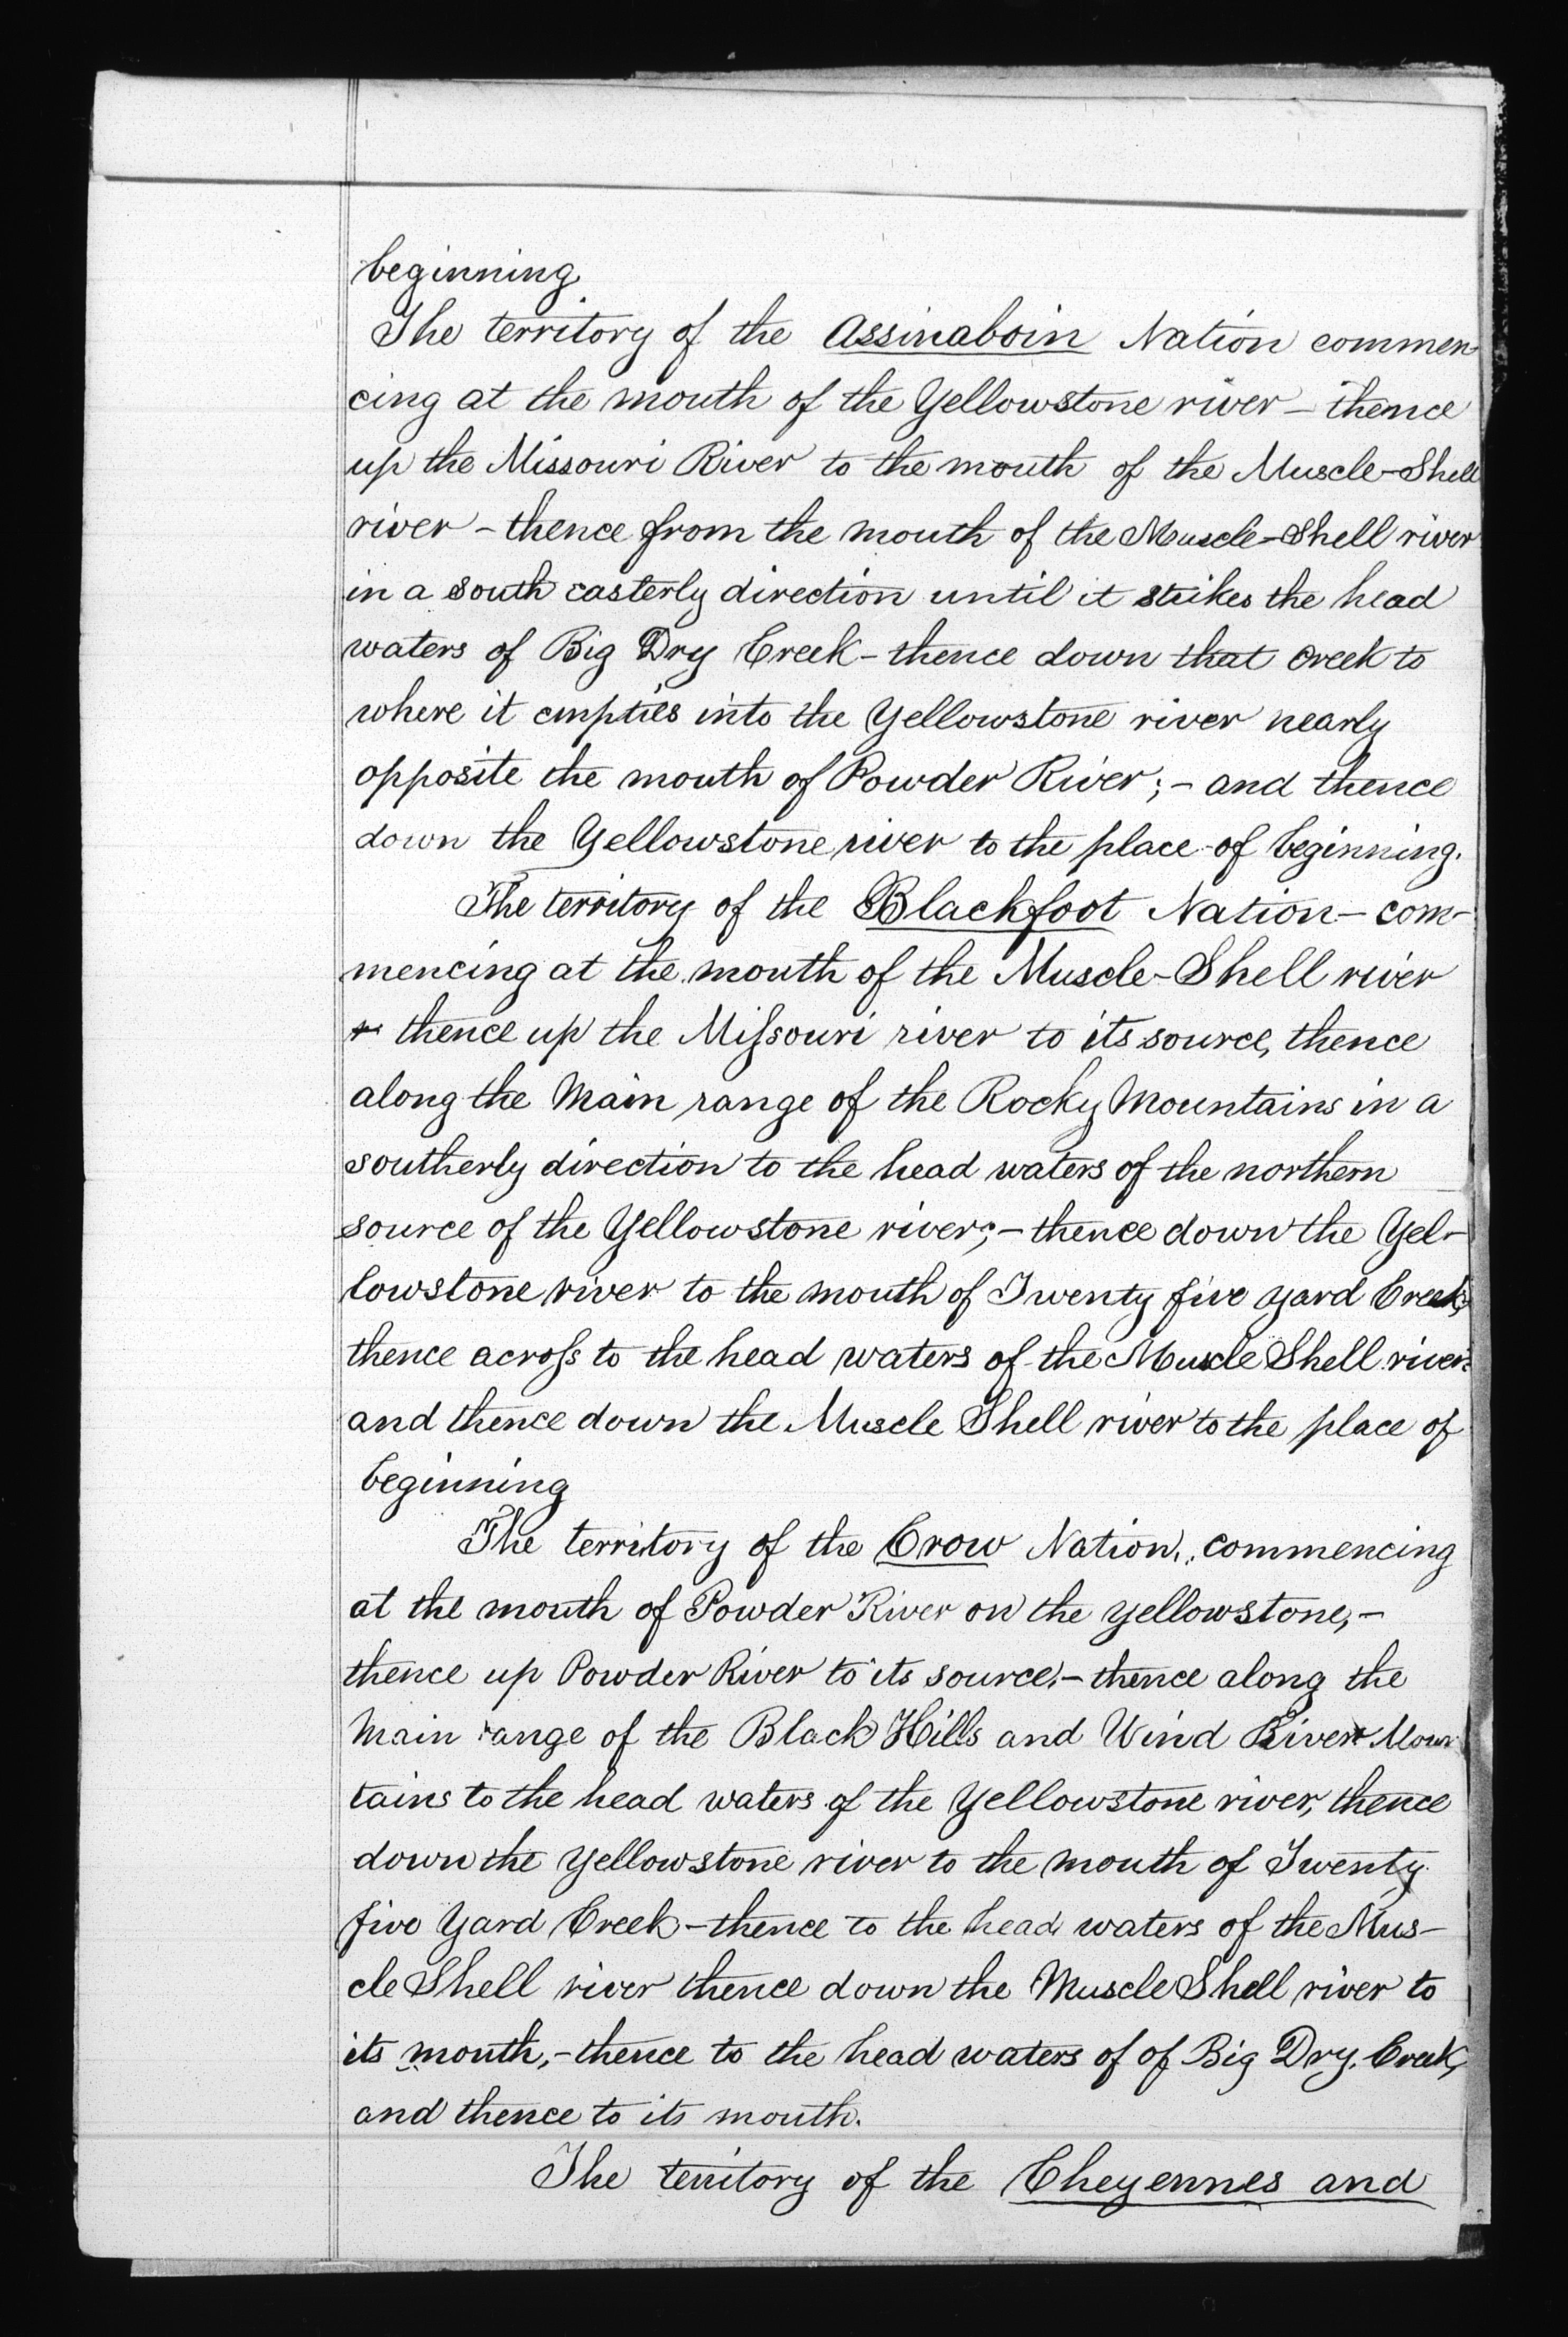 beginning
The territory of the Assinaboin Nation commen-
cing at the mouth of the Yellowstone river – thence
up the Missouri River to the mouth of the Muscle-Shell
river – thence from the mouth of the Muscle-Shell river
in a south easterly direction until it strikes the head
waters of Big Dry Creek – thence down that creek to
where it empties into the Yellowstone river nearly
opposite the mouth of Powder River; – and thence
down the Yellowstone river to the place of beginning.
The territory of the Blackfoot Nation – com-
mencing at the mouth of the Muscle-Shell river
thence up the Missouri river to its source, thence
along the Main range of the Rocky Mountains in a
southerly direction to the head waters of the northern
source of the Yellowstone river; – thence down the Yel-
lowstone river to the mouth of Twenty five yard Creek,
thence across to the head waters of the Muscle Shell river
and thence down the Muscle Shell river to the place of
beginning
The territory of the Crow Nation, commencing
at the mouth of Powder River on the Yellowstone, –
thence up Powder River to its source, – thence along the
Main range of the Black Hills and Wind River Moun
tains to the head waters of the Yellowstone river, thence
down the Yellowstone river to the mouth of Twenty
five Yard Creek – thence to the head waters of the Mus-
cle Shell river thence down the Muscle Shell river to
its mouth, – thence to the head waters of of Big Dry Creek,
and thence to its mouth.
The territory of the Cheyennes and